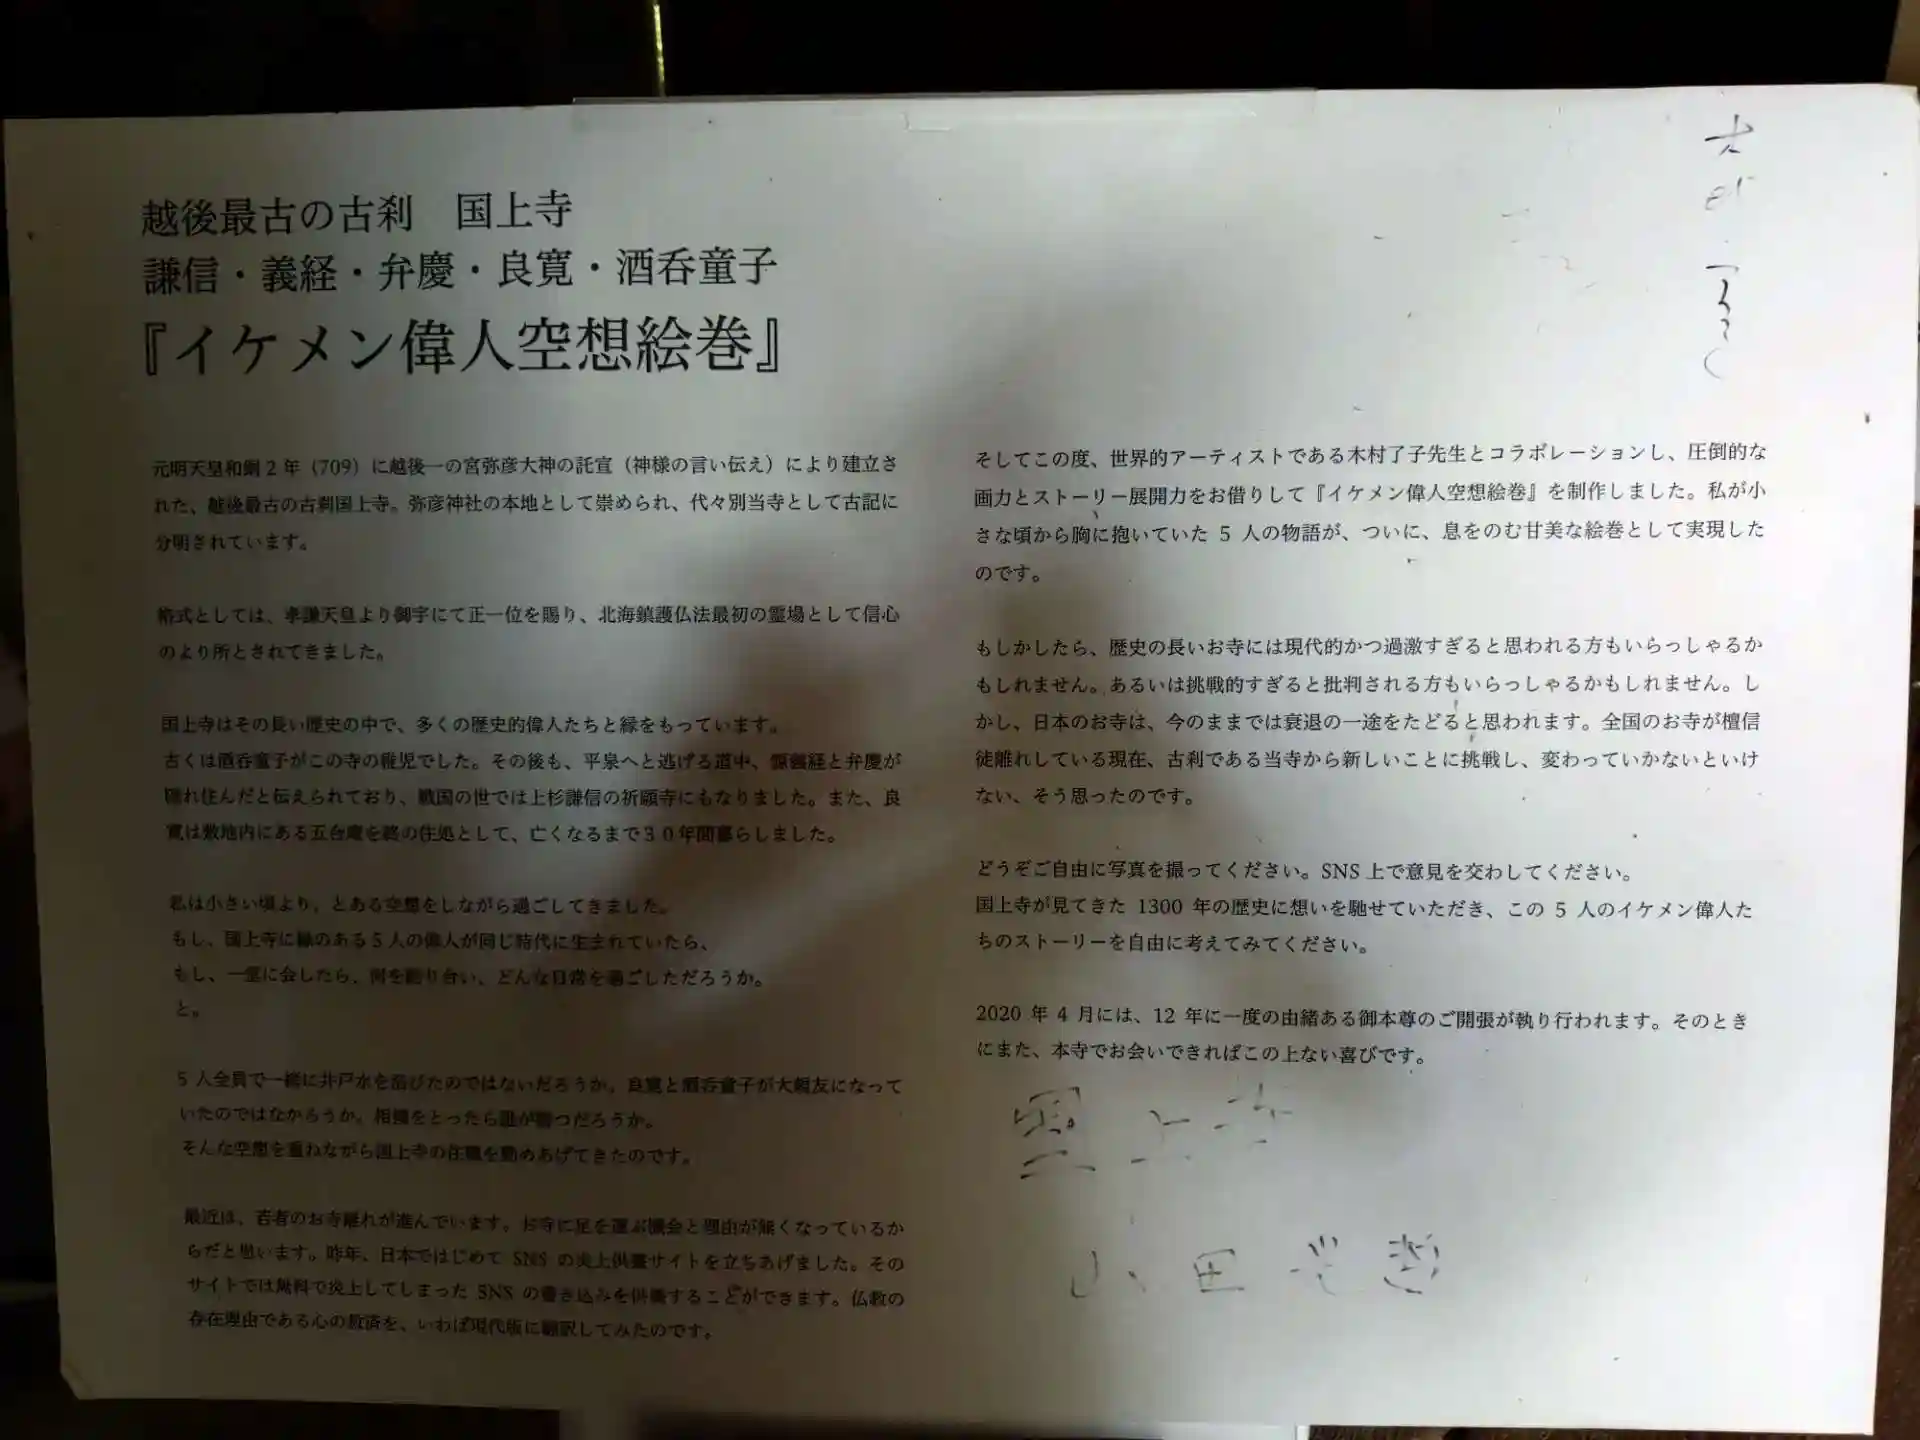 越後最古の古刹　国上寺
謙信・義経・弁慶・良寛・酒呑童子
『イケメン偉人空想絵巻』
元明天皇和銅2年（709）に越後一の宮弥彦大神の託宣（神様の言い伝え）により建立さ
れた、越後最古の古刹国上寺。弥彦神社の本地として崇められ、代々別当寺として古記に
分明されています。
格式としては、孝謙天皇より御宇にて正一位を賜り、北海鎮護仏法最初の霊場として信心
のより所とされてきました。
国上寺はその長い歴史の中で、多くの歴史的偉人たちと縁をもっています。
古くは酒呑童子がこの寺の稚児でした。その後も、平泉へと逃げる道中、源義経と弁慶が
隠れ住んだと伝えられており、戦国の世では上杉謙信の祈願寺にもなりました。また、良
寛は敷地内にある五合庵を終の住処として、亡くなるまで30年間暮らしました。
私は小さい頃より、とある空想をしながら過ごしてきました。
もし、国上寺に縁のある5人の偉人が同じ時代に生まれていたら、
もし、一堂に会したら、何を語り合い、どんな日常を過ごしただろうか。
と。
5人全員で一緒に井戸水を浴びたのではないだろうか。良寛と酒呑童子が大親友になって
いたのではなかろうか。相撲をとったら誰が勝つだろうか。
そんな空想を重ねながら国上寺の住職を勤めあげてきたのです。
最近は、若者のお寺離れが進んでいます。お寺に足を運ぶ機会と理由が無くなっているか
らだと思います。昨年、日本ではじめて SNS の炎上供養サイトを立ちあげました。その
サイトでは無料で炎上してしまった SNS の書き込みを供養することができます。仏教の
存在理由である心の救済を、いわば現代版に翻訳してみたのです。
そしてこの度、世界的アーティストである木村了子先生とコラボレーションし、圧倒的な
画力とストーリー展開力をお借りして『イケメン偉人空想絵巻』を制作しました。私が小
さな頃から胸に抱いていた 5 人の物語が、ついに、息をのむ甘美な絵巻として実現した
のです。
もしかしたら、歴史の長いお寺には現代的かつ過激すぎると思われる方もいらっしゃるか
もしれません。あるいは挑戦的すぎると批判される方もいらっしゃるかもしれません。し
かし、日本のお寺は、今のままでは衰退の一途をたどると思われます。全国のお寺が檀信
徒離れしている現在、古刹である当寺から新しいことに挑戦し、変わっていかないといけ
ない、そう思ったのです。
どうぞご自由に写真を撮ってください。SNS 上で意見を交わしてください。
国上寺が見てきた 1300 年の歴史に想いを馳せていただき、この 5 人のイケメン偉人た
ちのストーリーを自由に考えてみてください。
2020 年 4 月には、12 年に一度の由緒ある御本尊のご開張が執り行われます。そのとき
にまた、本寺でお会いできればこの上ない喜びです。
国上寺
山田光哲